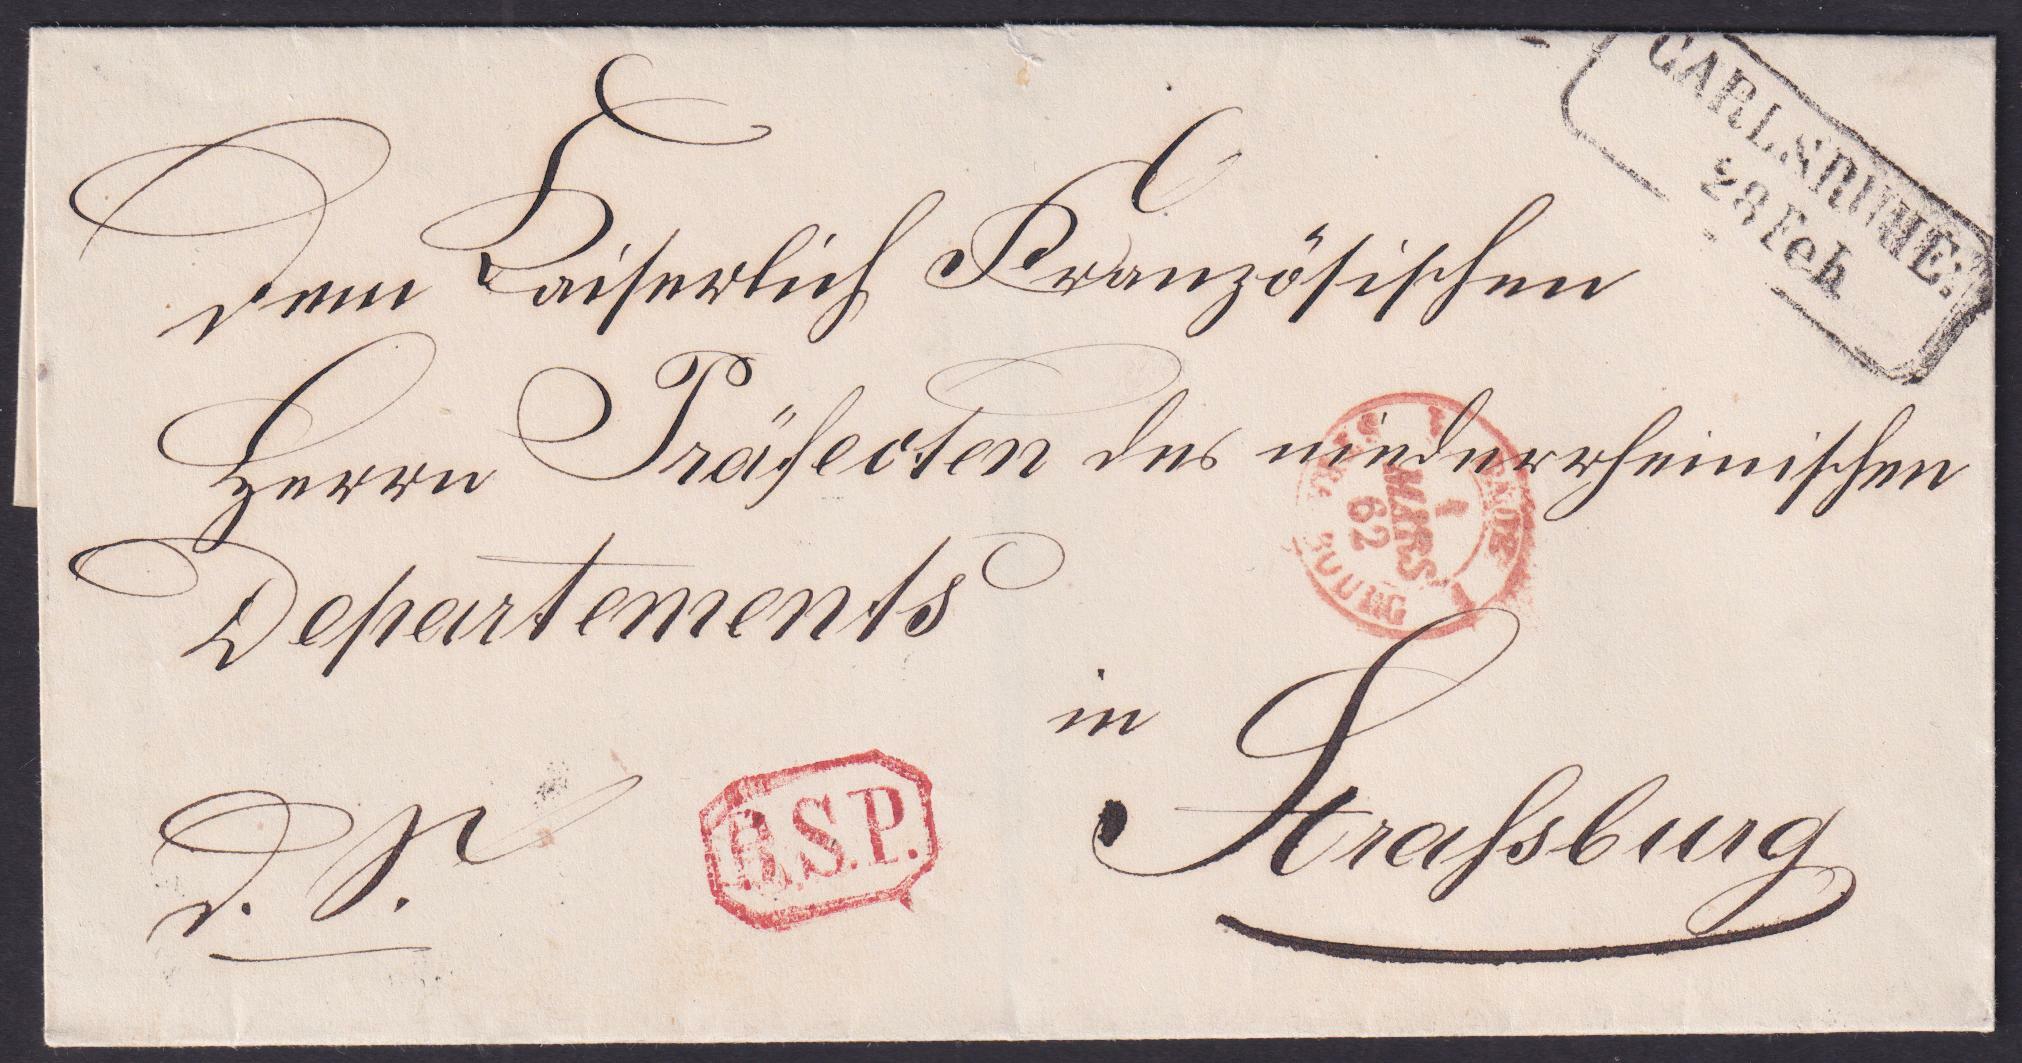 CARLSRUHE.
28 Feb.
Dem Kaiserlich Französischen
Herrn Präfecten des niederrheinischen
Departements
1
MARS
62
in
Straßburg
d. S.
B.S.P.